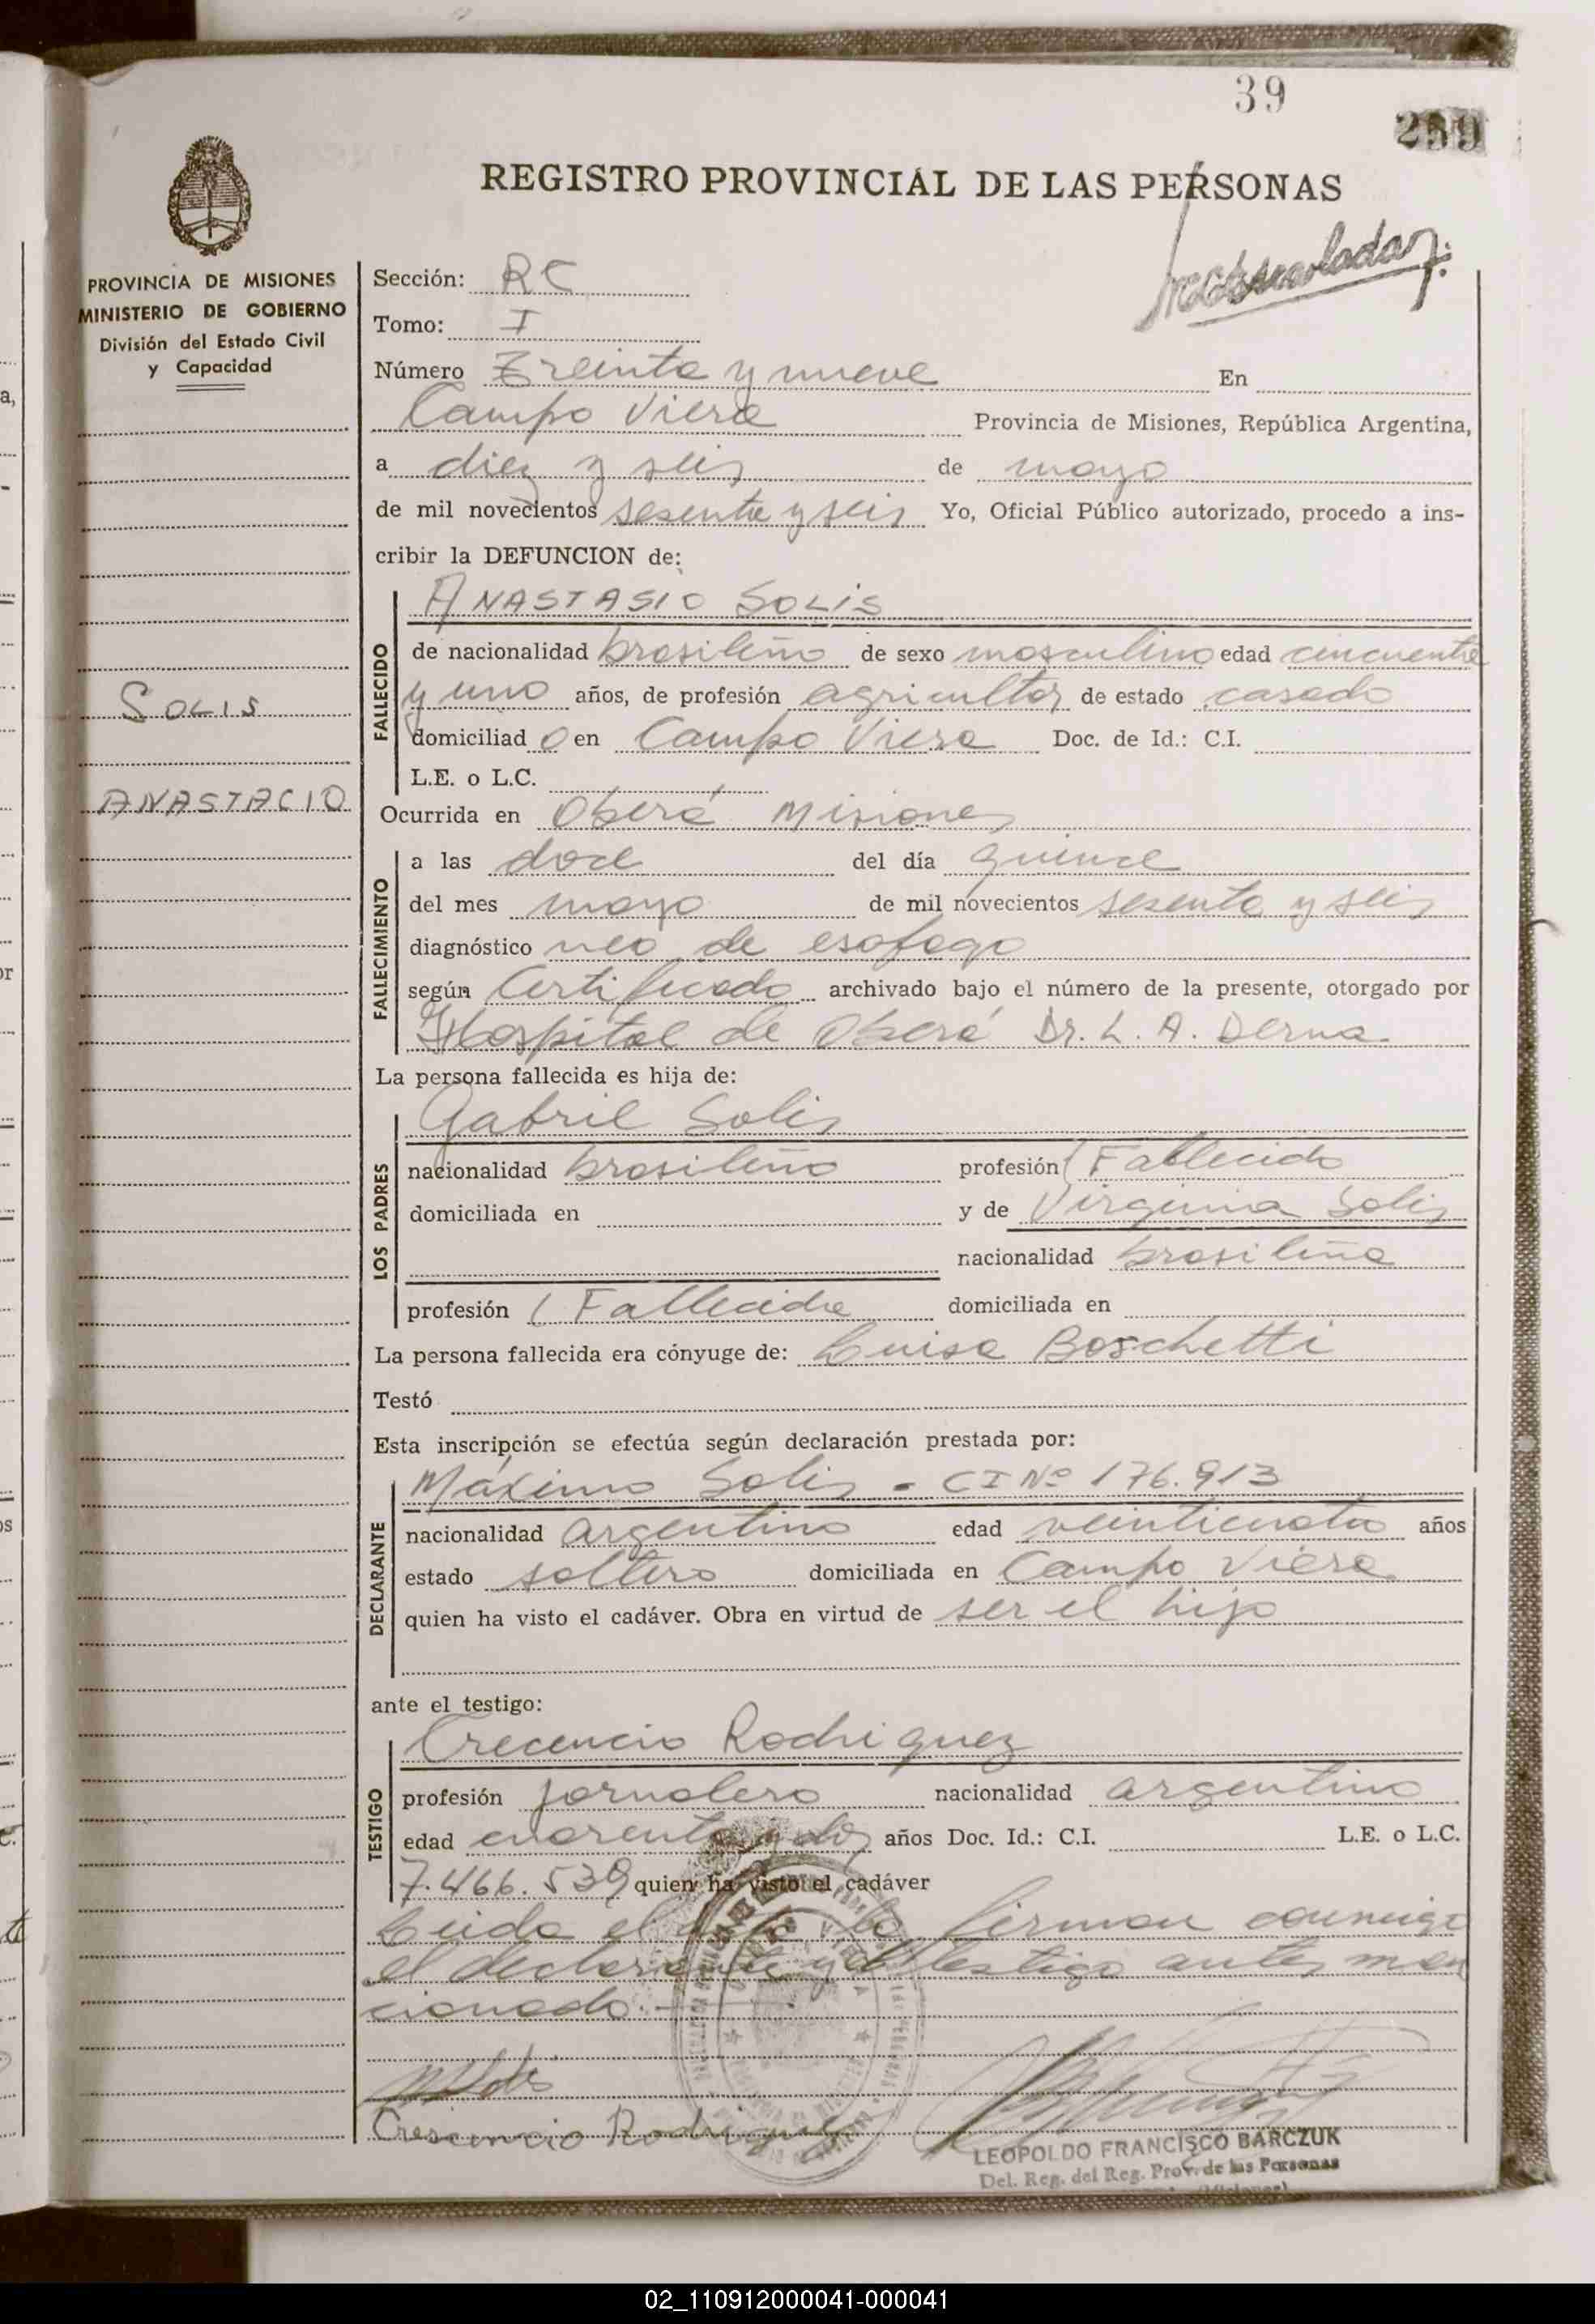 39
259
REGISTRO PROVINCIAL DE LAS PERSONAS
PROVINCIA DE MISIONES
MINISTERIO DE GOBIERNO
División del Estado Civil
y Capacidad
SOLIS
ANASTACIO
Sección: RC
Tomo: I
Número Treinta y nueve En
Campo Viera Provincia de Misiones, República Argentina,
a diez y seis de mayo
de mil novecientos sesenta y seis Yo, Oficial Público autorizado, procedo a ins-
cribir la DEFUNCION de:
FALLECIDO
ANASTASIO SOLIS
de nacionalidad brasileño de sexo masculino edad cincuenta
y uno años, de profesión agricultor de estado casado
domiciliad o en Campo Viera Doc. de Id.: C.I.
L.E. o L.C.
Ocurrida en Oberá Misiones
FALLECIMIENTO
a las doce del día quince
del mes mayo de mil novecientos sesenta y seis
diagnóstico neo de esofago
según Certificado archivado bajo el número de la presente, otorgado por
Hospital de Oberá Dr. L. A. Derna
La persona fallecida es hija de:
LOS PADRES
Gabril Solis
nacionalidad brasileño profesión (Fallecido
domiciliada en y de Virginia Solis
nacionalidad brasileña
profesión (Fallecida domiciliada en
La persona fallecida era cónyuge de: Luisa Boschetti
Testó
Esta inscripción se efectúa según declaración prestada por:
DECLARANTE
Máximo Solis - CI Nº 176.913
nacionalidad argentino edad veinticuatro años
estado soltero domiciliada en Campo Viera
quien ha visto el cadáver. Obra en virtud de ser el hijo
ante el testigo:
TESTIGO
Crecencio Rodriguez
profesión jornalero nacionalidad argentino
edad cuarenta y dos años Doc. Id.: C.I. L.E. o L.C.
7.466.539 quien ha visto el cadáver
Leida el acta la firman conmigo
el declarante y el testigo antes men
cionado.-
Crescencio Rodriguez
LEOPOLDO FRANCISCO BARCZUK
Del. Reg. del Reg. Prov. de las Personas
(Misiones)
02_110912000041-000041